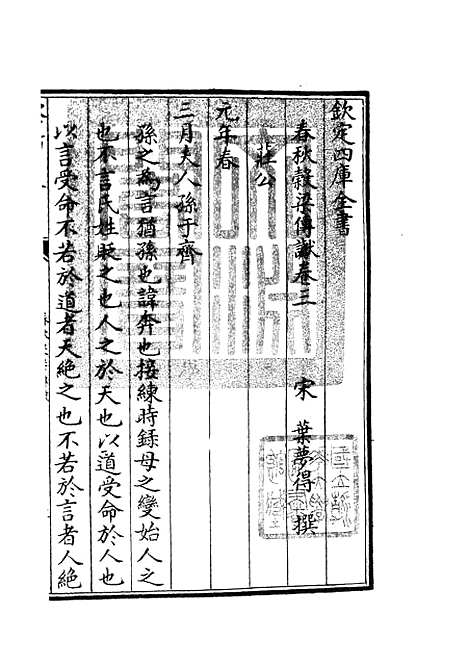 欽定四庫全書
春秋穀梁傳讞卷三
宋 葉夢得 撰
莊公
元年春
三月夫人孫于齊
孫之為言猶孫也諱奔也接練時録母之變始人之
也不言氏姓貶之也人之於天也以道受命於人也
以言受命不若於道者天絶之也不若於言者人絶